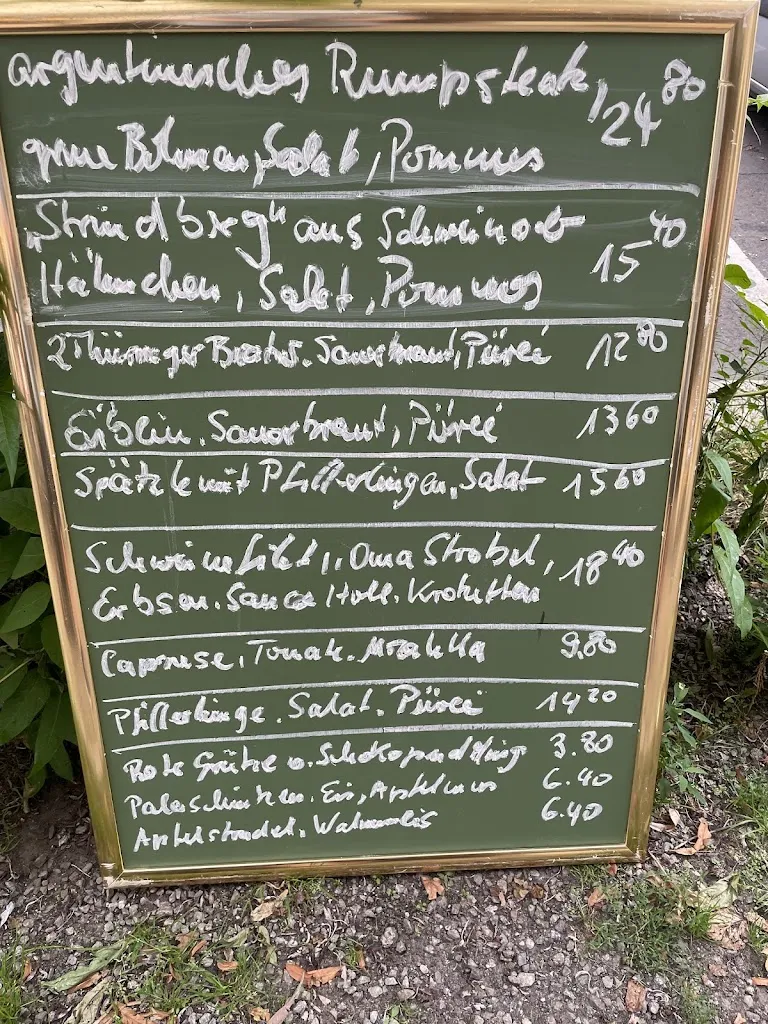 argentinisches Rumpsteak, 24 80
grüne Bohnen, Salat, Pommes
„Strindberg" aus Schweineob
Hähnchen, Salat, Pommes 15 40
2 Thüringer Bratw. Sauerkraut, Püree 12 80
Eisbein, Sauerkraut, Püree 13 60
Spätzle mit Pfifferlingen, Salat 15 60
Schweinefilet „Oma Strobel, 18 40
Erbsen, Sauce Holl. Kroketten
Caprese, Tomate. Mozarella 9,80
Pfifferlinge. Salat. Püree 14 20
Rote Grütze o. Schokopudding 3.80
Palaschinken. Eis, Apfelmus 6.40
Apfelstrudel. Walnusseis 6.40